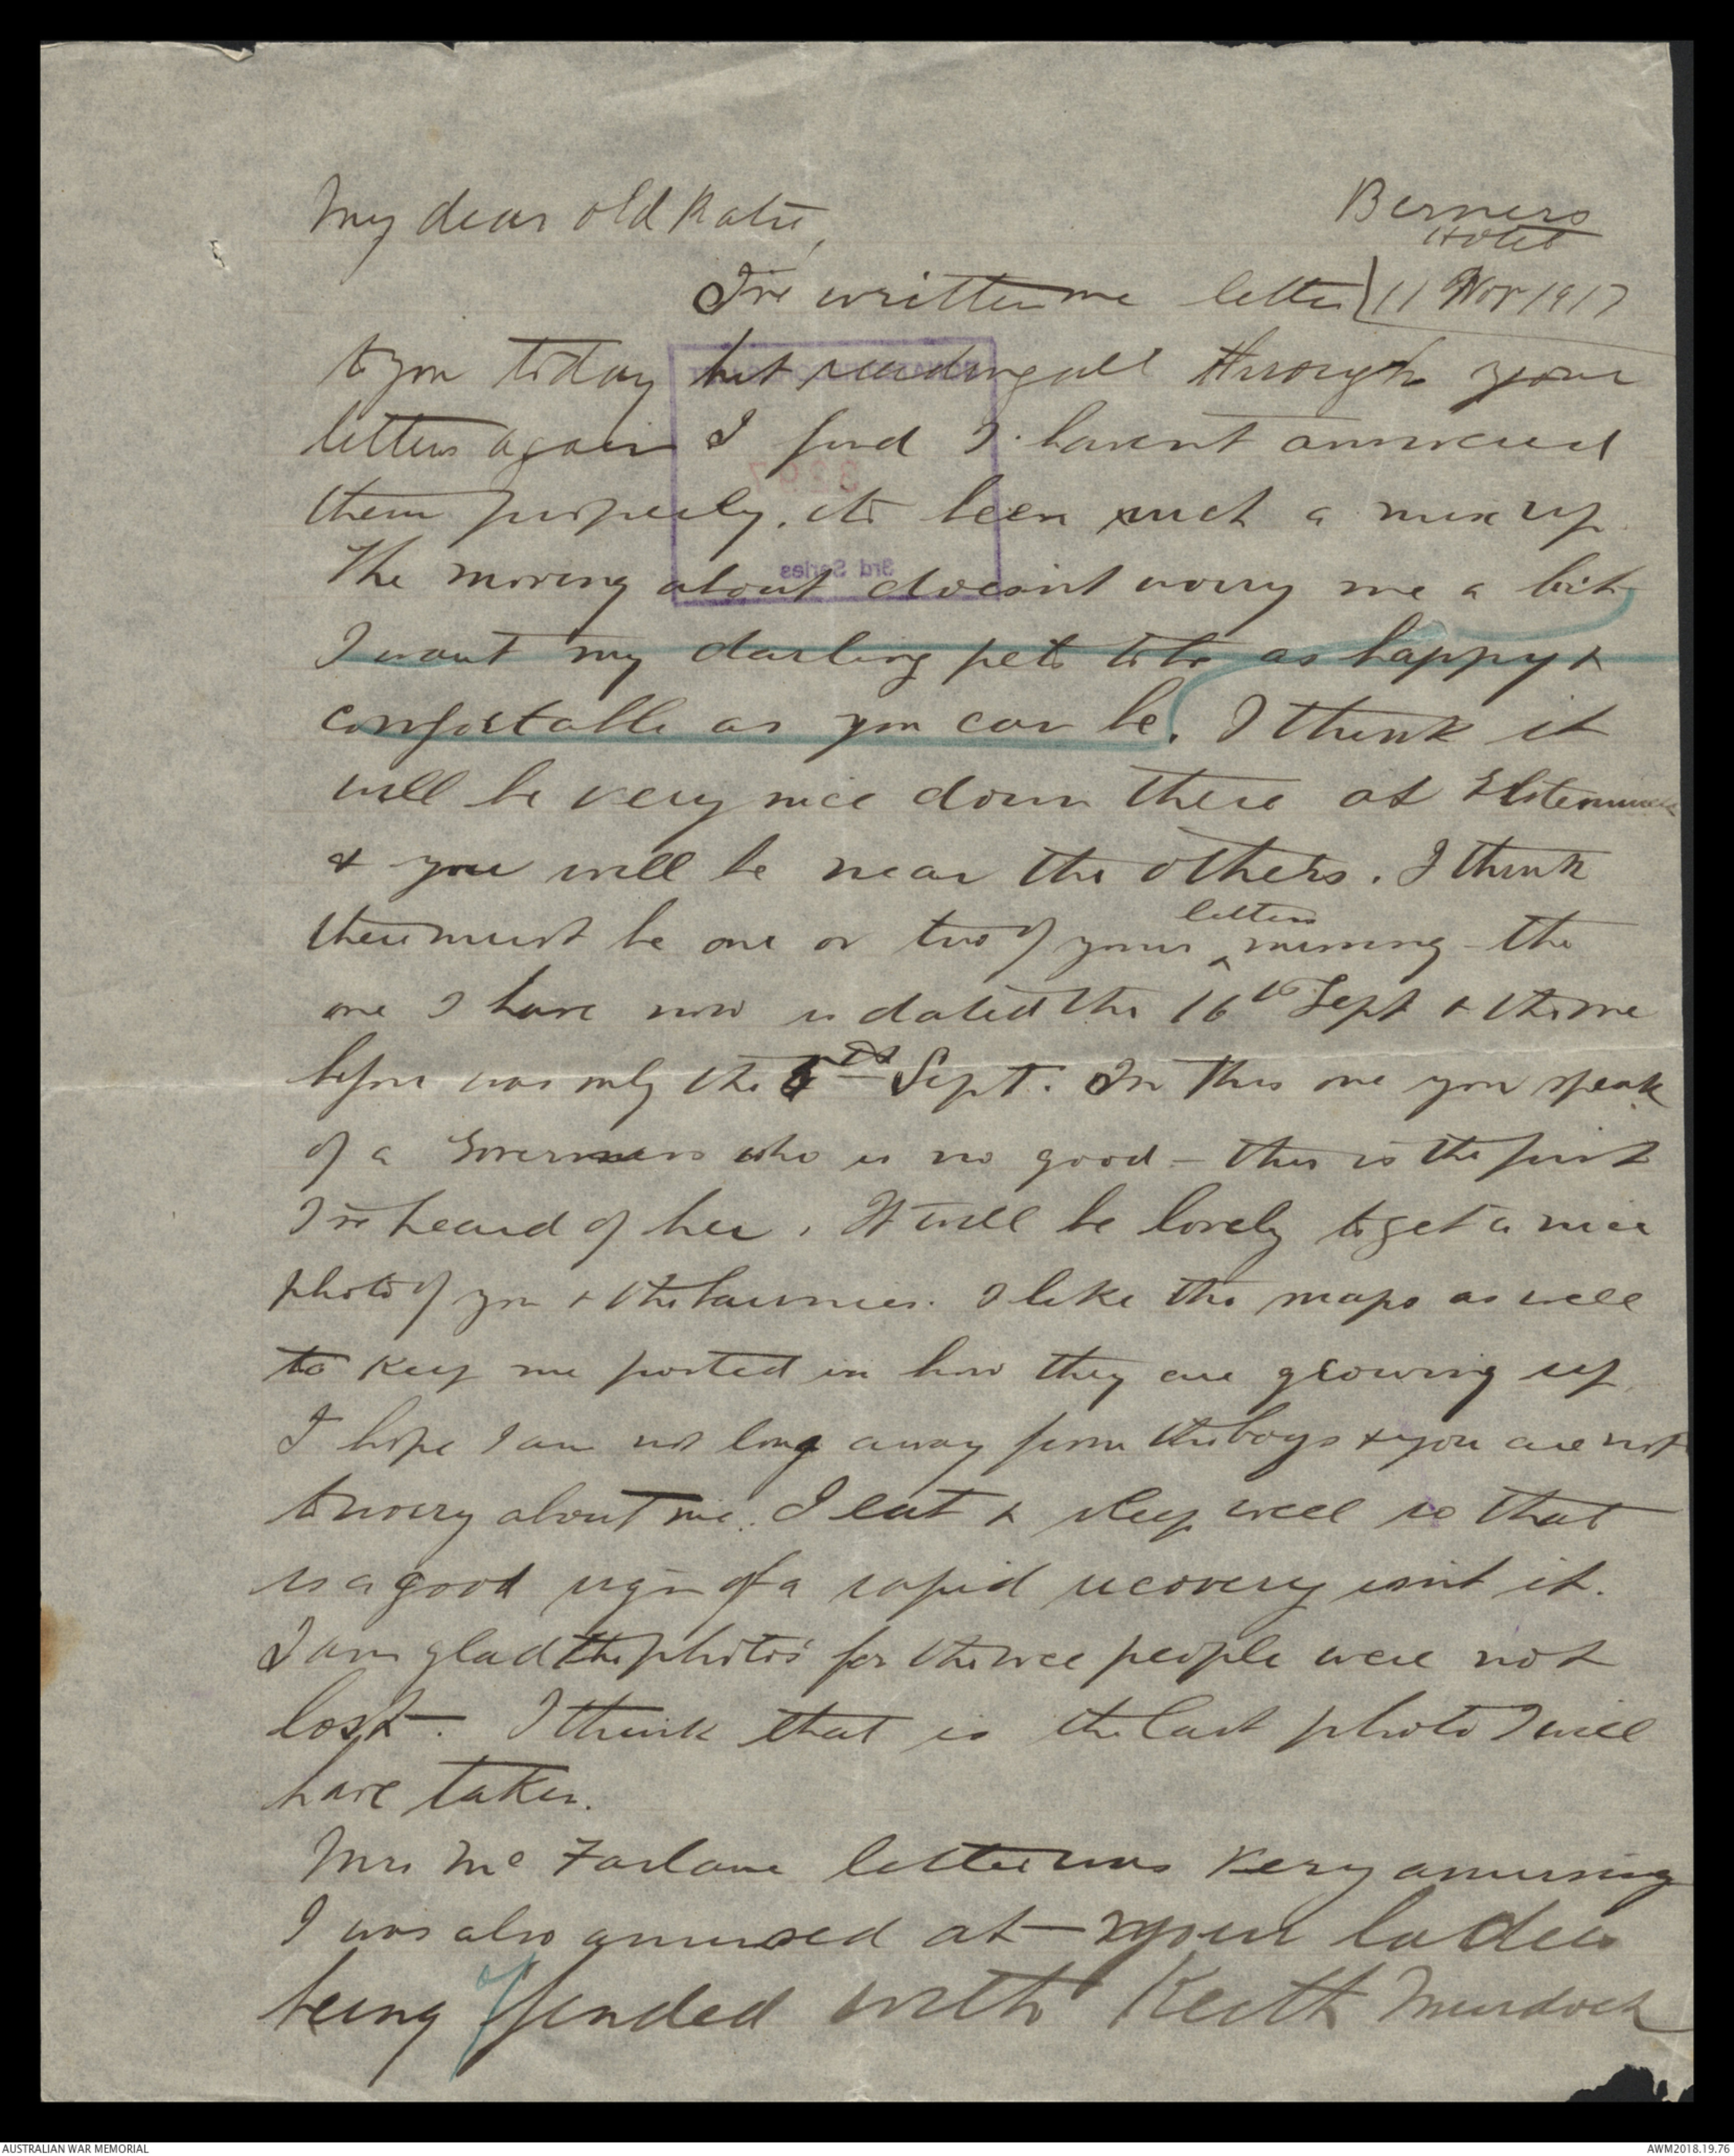 My dear old Katie,
Berners
Hotel
I've written one letter 11 Nov 1917
to you today but reading all through your
letters again I find I havent answered
them properly, its been such a mix up
The moving about doesnt worry me a bit
I want my darling pet to be as happy &
comfortable as you can be. I think it
will be very nice down there at
& you will be near the others. I think
there must be one or two of yours letters missing - the
one I have now is dated the 16th Sept & the one
before was only the Sept. In this one you speak
of a Governess who is no good - this is the first
I've heard of her. It will be lovely to get a nice
photo of you & the bairnies. I like the snaps as well
to keep me posted in how they are growing up
I hope I am not long away from the boys & you are not
to worry about me. I eat & sleep well so that
is a good sign of a rapid recovery isnt it.
I am glad the photos for the wee people were not
lost - I think that is the last photo I will
have taken.
Mrs McFarlane letter was very amusing
I was also amused at your ladies
being offended with Keith Murdoch
3rd Series
AUSTRALIAN WAR MEMORIAL
AWM2018.19.76